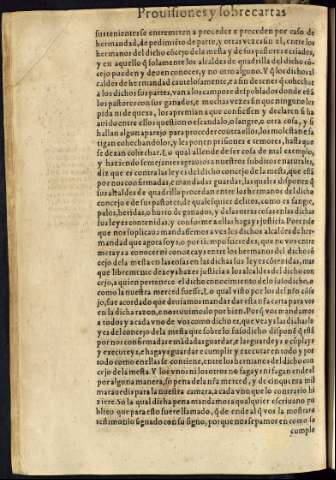 Prouisiones y sobrecartas
sus tenientes se entremeten a proceder e proceden por caso de
hermandad, de pedimiento de parte, y otras vezes assi el, entre los
hermanos del dicho concejo de la mesta y de sus pastores e criados,
y en aquello q̃ solamente los alcaldes de quadrilla del dicho cõ
cejo pueden y deuen conocer, y no otro alguno. Y q̃ los dichos al
caldes de hermandad cautelosamente, e a fin de tener q̃ cohechar
a los dichos sus partes, van a los campos e despoblados donde estã
los pastores con sus ganados, e muchas vezes sin que ninguno les
pida ni de quexa, los apremian a que confiessen y declaren si ha
auido entre ellos question o desafio, o sangre, o otra cosa, y si
hallan algun aparejo para proceder contra ellos, los molestan e fa
tigan cohechandolos, y los ponen prisiones e temores, hasta que
se dexan cohechar. Lo qual allende de ser cosa de mal exemplo,
y haziendo semejantes agrauios a nuestros subditos e naturales,
diz que es contra las leyes del dicho concejo de la mesta, que estã
por nos confirmadas, e mandadas guardar, las quales disponen q̃
sus alcaldes de quadrilla procedan entre los hermanos del dicho
concejo e de sus pastores, de qualesquier delitos, como es sangre,
palos, heridas, o hurto de ganados, y de las otras cosas en las dichas
sus leyes contenidas, y conforme a ellas hagays justicia. Por ende
que nos suplicaua mandassemos a vos los dichos alcaldes de her-
mandad que agora soys, o por tiempo fueredes, que no vos entre
metays a conocer ni conozcays entre los hermanos del dicho cõ
cejo de la mesta en las cosas en las dichas sus leyes contenidas, mas
que libremente dexeys hazer justicia a los alcaldes del dicho con
cejo, a quien pertenece el dicho conocimiento de lo susodicho, o
como la nuestra merced fuesse. Lo qual visto por los del nr̃o cõse
jo, fue acordado que deuiamos mandar dar esta nr̃a carta para vos
en la dicha razon, e nos tuuimoslo por bien. Porq̃ vos mandamos
a todos y a cada vno de vos como dicho es, que veays las dichas le
yes del concejo de la mesta que sobre lo susodicho disponẽ q̃ estã
por nos confirmadas e mãdadas guardar, e las guardeys e cũplays
y executeys, e hagays guardar e cumplir y executar en todo y por
todo como en ellas se contiene, entre los hermanos del dicho con
cejo de la mesta. Y los vnos ni los otros no fagays ni fagan ende al
por alguna manera, so pena de la nr̃a merced, y de cinquenta mil
marauedis para la nuestra camara, a cada vno que lo contrario hi
ziere. So la qual dicha pena mandamos a qualquier escriuano pu
blico que para esto fuere llamado, q̃ de ende al q̃ vos la mostrare
testimonio signado con su signo, porque nos sepamos en como se
cumple